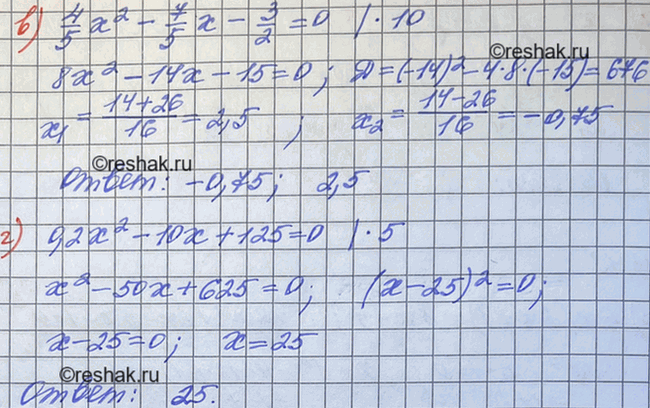 в) 4/5 x² − 7/5 x − 3/2 = 0 | · 10
8x² − 14x − 15 = 0; Д = (−14)² − 4·8·(−15) = 676
x₁ = (14+26)/16 = 2,5 ; x₂ = (14−26)/16 = −0,75
©reshak.ru
©reshak.ru
Ответ: −0,75; 2,5
г) 0,2x² − 10x + 125 = 0 | · 5
x² − 50x + 625 = 0; (x − 25)² = 0;
x − 25 = 0; x = 25
©reshak.ru
Ответ: 25.